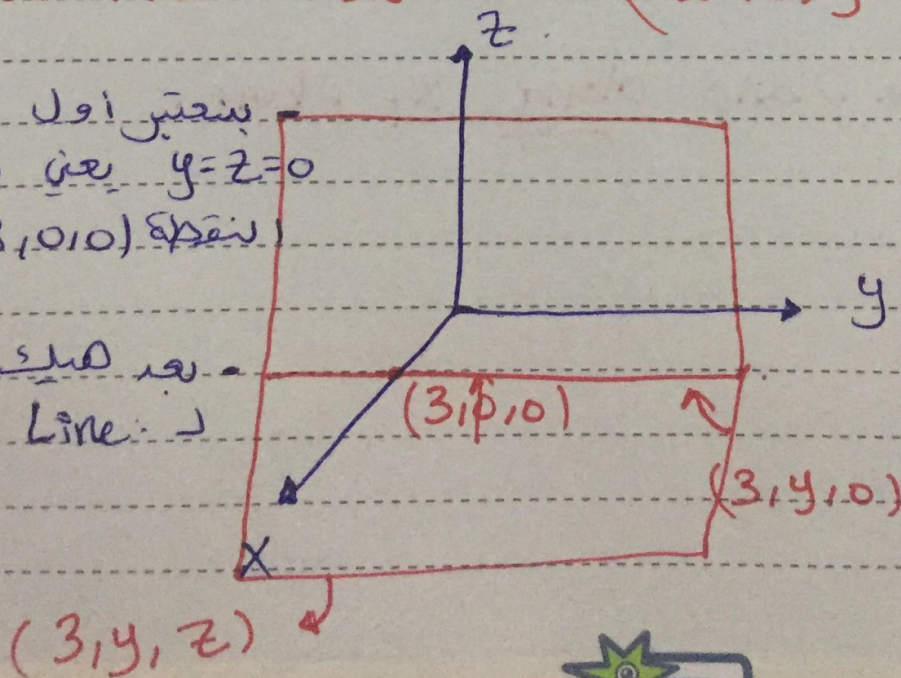 z
- بنعتبر أول
يعني y=z=0
النقطة (3,0,0)
y
- بعد هيك
لـ Line
(3,0,0)
(3,y,0)
X
(3,y,z)